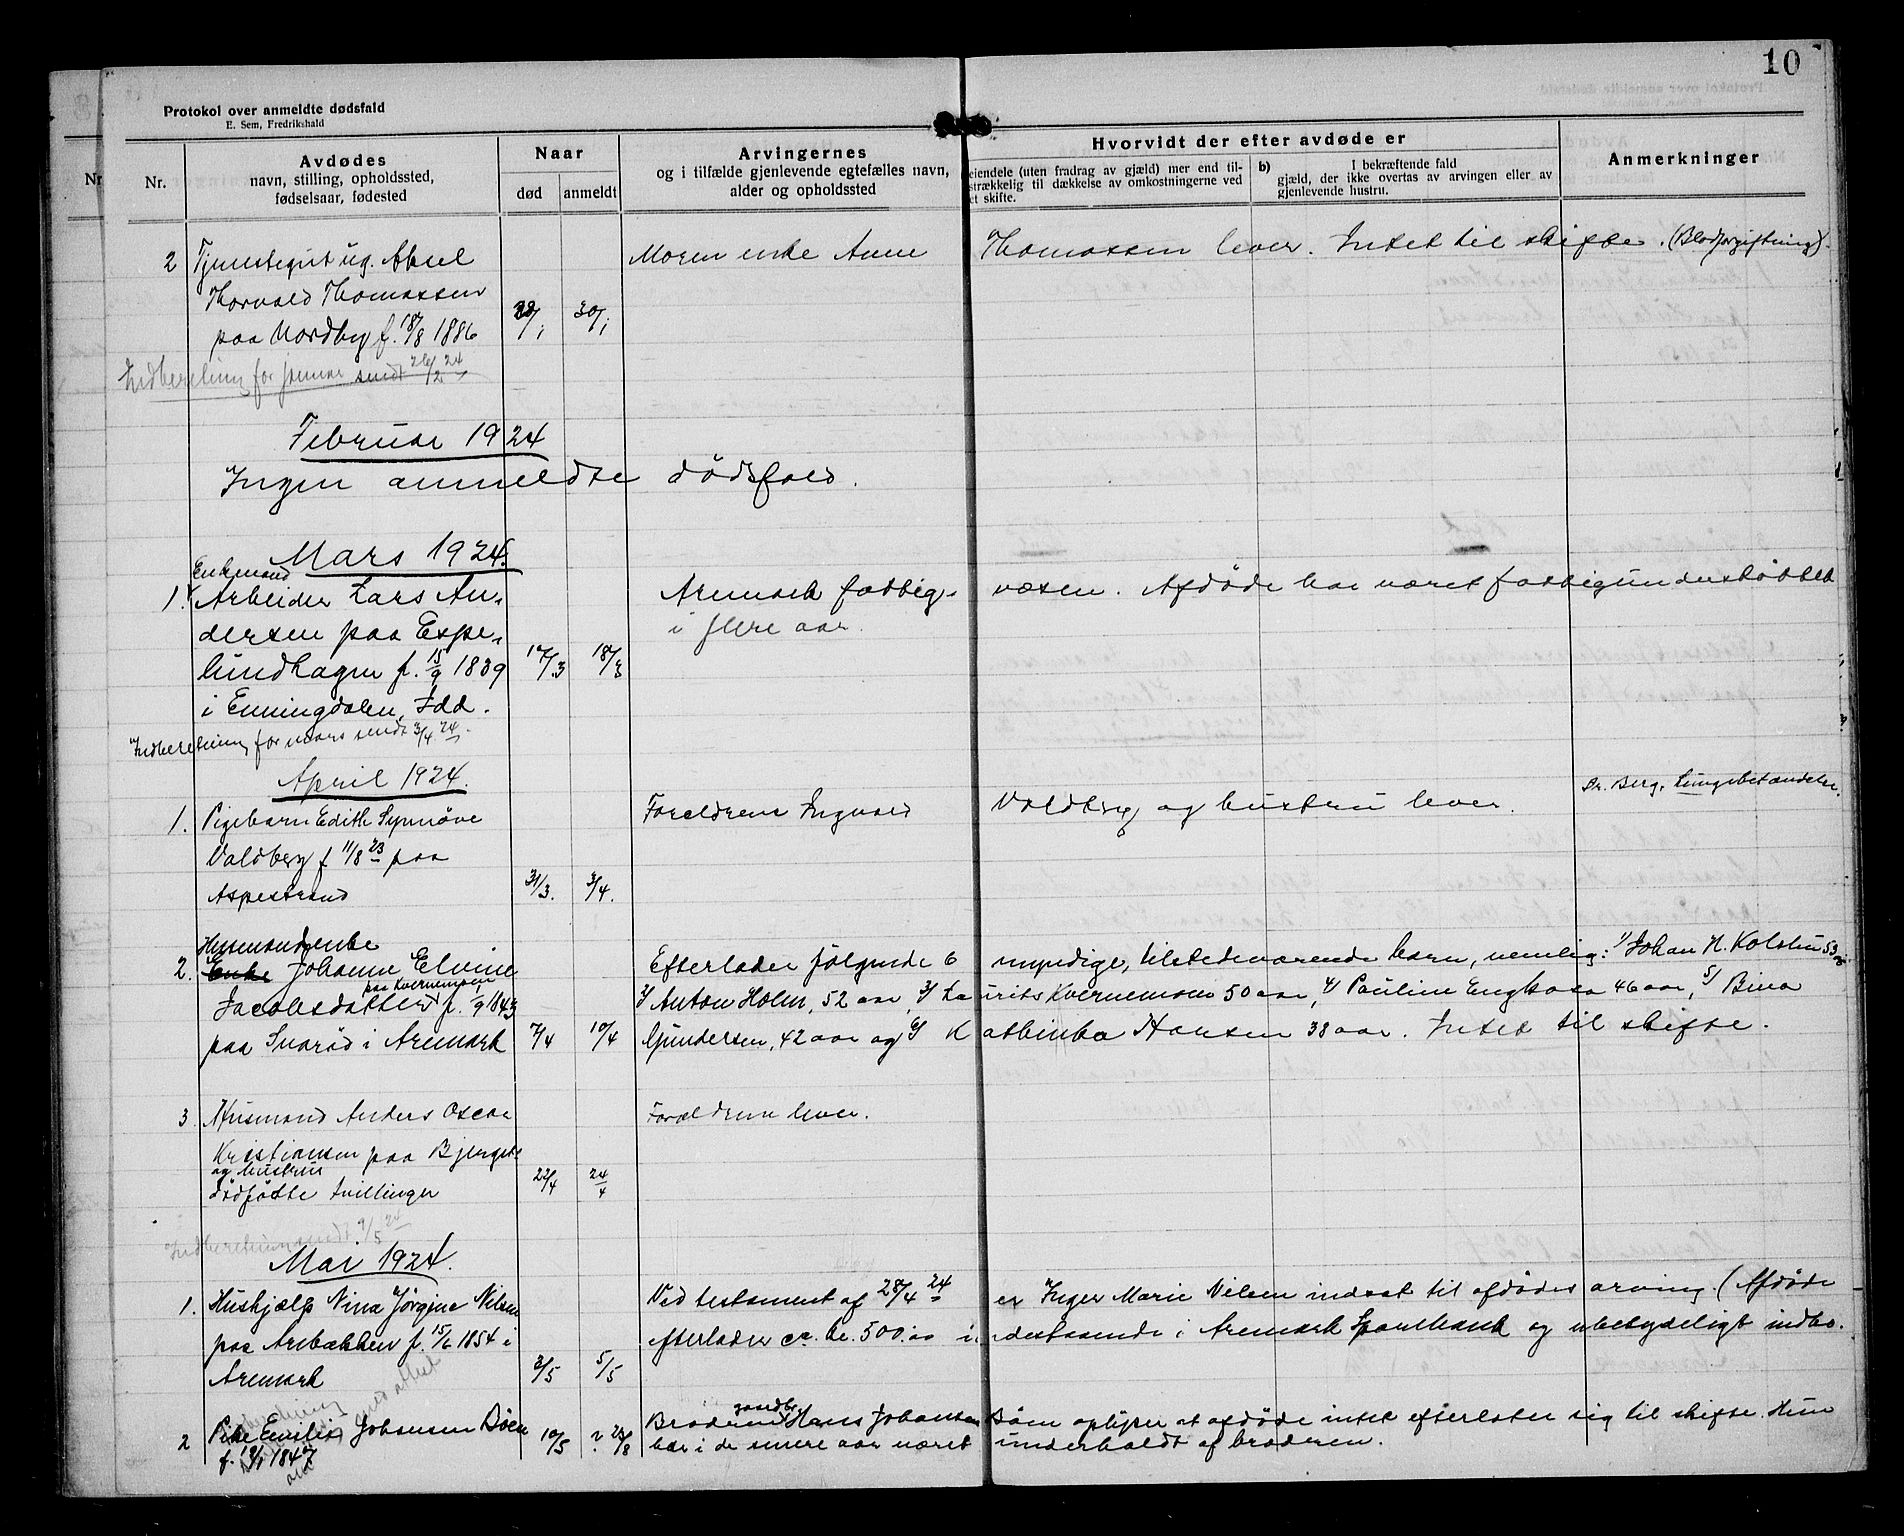 10
Protokol over anmeldte dødsfald
E. Sem, Fredrikshald
Nr.
Nr.
Avdødes
navn, stilling, opholdssted,
fødselsaar, fødested
Naar
død
anmeldt
Arvingernes
og i tilfælde gjenlevende egtefælles navn,
alder og opholdssted
Hvorvidt der efter avdøde er
eiendele (uten fradrag av gjæld) mer end til-
strækkelig til dækkelse av omkostningerne ved
et skifte.
b)
I bekræftende fald
gjæld, der ikke overtas av arvingen eller av
gjenlevende hustru.
Anmerkninger
2 Tjenestegut ug. Aksel
Thorvald Thomassen
paa Nordby f. 18/8 1886
30/1
Moren enke Anne Thomassen lever. Intet til skifte. (Blodforgiftning).
Indberetning for januar sendt 26/2 24
Februar 1924
Ingen anmeldte dødsfald.
Mars 1924.
Enkemand
1. Arbeider Lars An-
dersen paa Espe-
lundhagen f. 15/9 1839
i Enningdalen, Idd.
17/3
18/3
Aremark fattig- væsen. Afdøde har været fattigunderstøttet
i flere aar.
Indberetning for mars sendt 3/4 24.
April 1924.
1. Pigebarn Edith Synnøve
Valdberg f 11/8 23 paa
Aspestrand
31/3.
3/4.
Foreldrene Ingvald Valdberg og hustru lever.
Dr. Berg. Lungebetændelse.
Husmandsenke
2. Enke Johanne Elvine
paa Kvernemoen
Jacobsdatter f. 1/9 1843
paa Svarød i Aremark
7/4
10/4
Efterlader følgende 6 myndige, tilstedeværende barn, nemlig: 1/ Johan H. Kolstun 53 aar
2/ Anton Holm, 52 aar, 3/ Laurits Kvernemoen 50 aar, 4/ Pauline Engkasa 46 aar, 5/ Bina
Gundersen, 42 aar og 6/ Kathinka Hansen 38 aar. Intet til skifte.
3. Husmand Anders Oscar
Kristiansen paa
og hustrus
dødfødte tvillinger
22/4
24/4
Forældrene lever.
Indberetning sendt 9/5 24
Mai 1924.
1. Hushjælp Nina Jørgine Nilsen
paa Arebakken f. 15/6 1854 i
Aremark
3/5
5/5
Ved testament af 28/4 24 er Inger Marie Nilsen indsat til afdødes arving (Afdøde
efterlader ca. kr. 500.00 indestaaende i Aremark Sparebank og ubetydeligt indbo.
2 Pike Emilie Johansen Bøen
f. 19/1 1847
10/5
? 23/8
Broderen gaardbr. Hans Johansen Bøen oplyser at afdøde intet efterlater sig til skifte. Hun
har i de senere aar været underholdt af broderen.